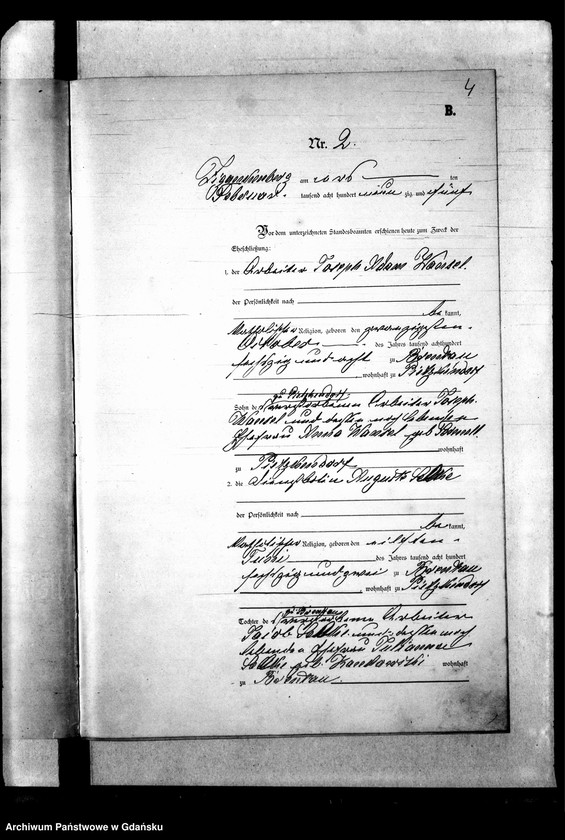 4
B.
Nr. 2.
Zigankenberg am ten
Februar. tausend acht hundert neun zig und fünf
Vor dem unterzeichneten Standesbeamten erschienen heute zum Zweck der
Eheschließung:
1. der Arbeiter Joseph Adam
der Persönlichkeit nach
be kannt,
katholischer Religion, geboren den zwanzigsten
October des Jahres tausend achthundert
sechszig und acht zu Brentau
, wohnhaft zu Pietzkendorf
zu Pietzkendorf
Sohn des verstorbenen Arbeiter Joseph
und dessen noch lebenden
Ehefrau Anna geb.
wohnhaft
zu Pietzkendorf
2. die Dienstbotin Auguste
der Persönlichkeit nach
be kannt,
katholischer Religion, geboren den elften
Juni des Jahres tausend acht hundert
sechszig und zwei zu Brentau
, wohnhaft zu Pietzkendorf
zu Brentau
Tochter des verstorbenen Arbeiter
Jacob und dessen noch
lebenden Ehefrau
geb. wohnhaft
zu Brentau.
Archiwum Państwowe w Gdańsku